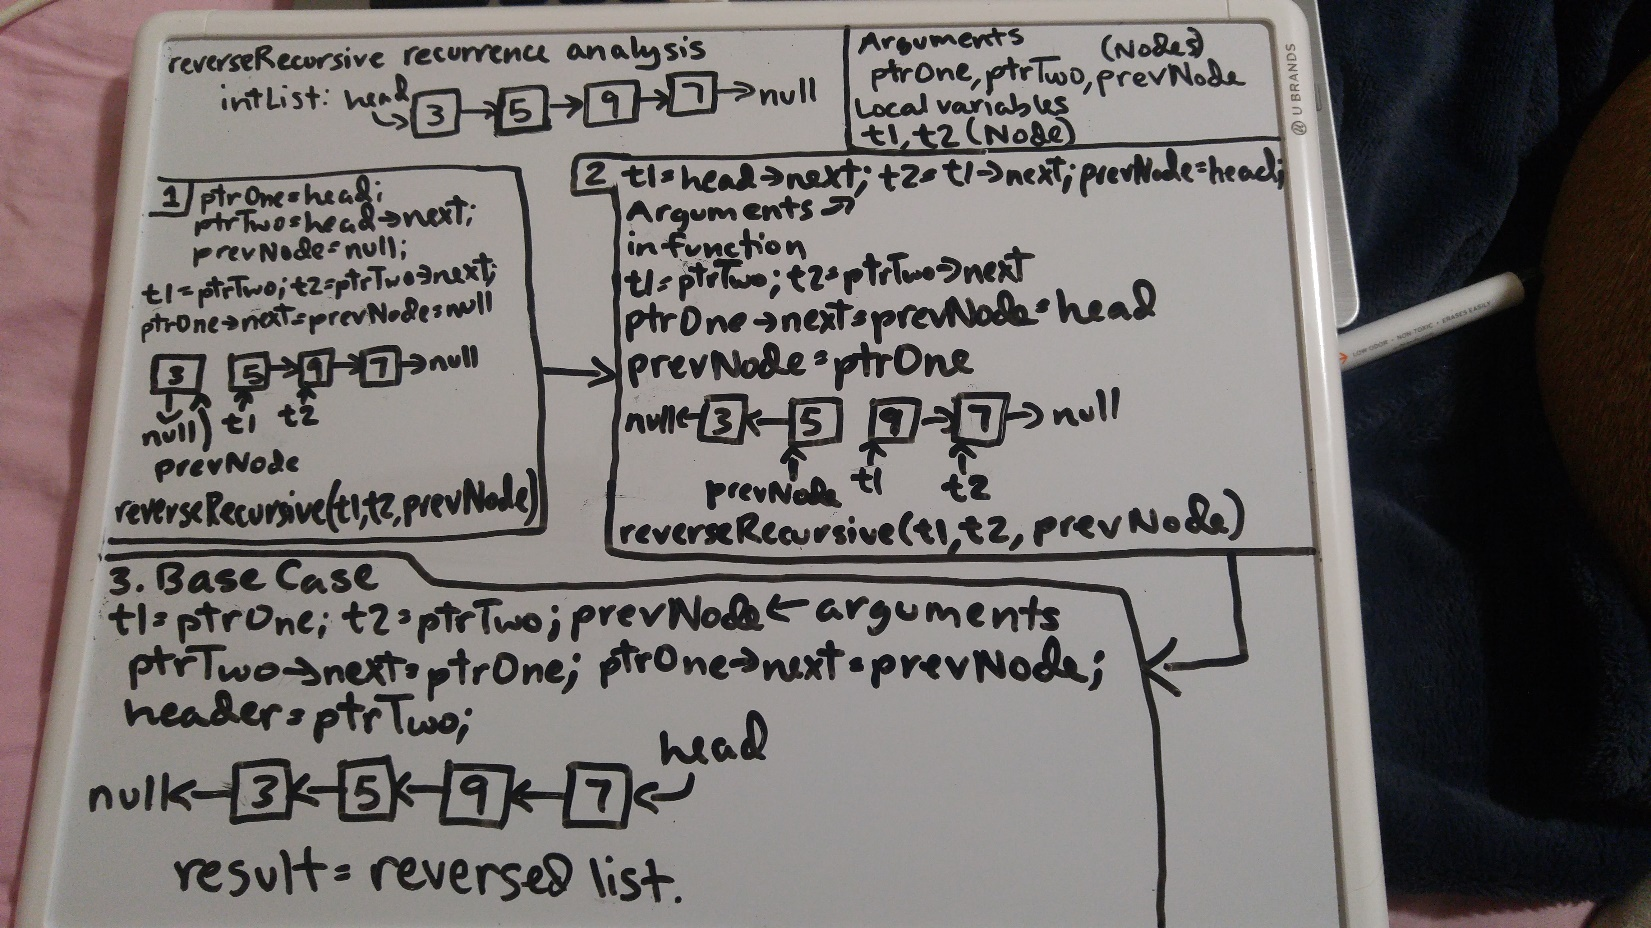 reverseRecursive recurrence analysis
intList: head
3 → 5 → 9 → 7 → null
Arguments (Nodes)
ptrOne, ptrTwo, prevNode
Local variables
t1, t2 (Node)
1 ptrOne=head;
ptrTwo=head→next;
prevNode=null;
t1=ptrTwo; t2=ptrTwo→next;
ptrOne→next=prevNode=null
3 5 → 9 → 7 → null
null t1 t2
prevNode
reverseRecursive(t1,t2,prevNode)
2 t1=head→next; t2=t1→next; prevNode=head;
Arguments ↗
in function
t1=ptrTwo; t2=ptrTwo→next
ptrOne→next=prevNode=head
prevNode=ptrOne
null ← 3 ← 5 9 → 7 → null
prevNode t1 t2
reverseRecursive(t1,t2, prevNode)
3. Base Case
t1=ptrOne; t2=ptrTwo; prevNode ← arguments
ptrTwo→next=ptrOne; ptrOne→next=prevNode;
header=ptrTwo;
head
null ← 3 ← 5 ← 9 ← 7 ←
result= reversed list.
U BRANDS
LOW ODOR • NON-TOXIC • ERASES EASILY